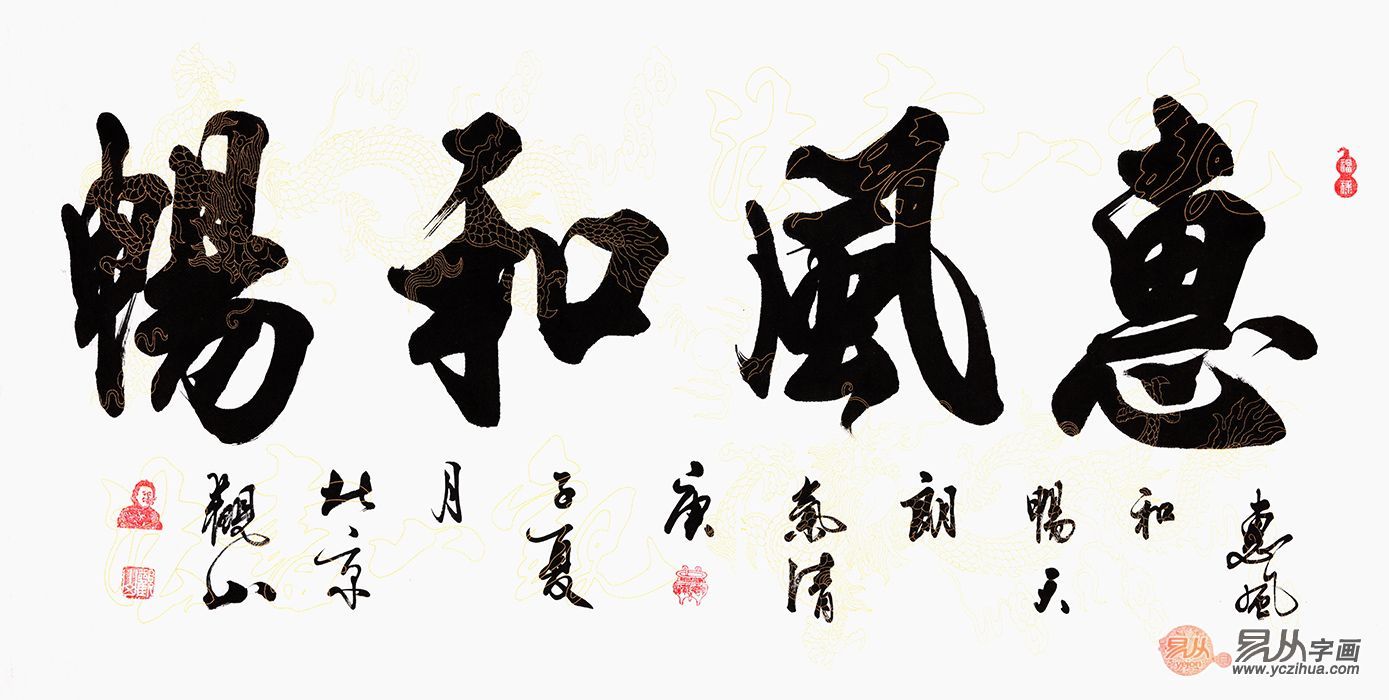 惠風和暢
惠風
和
暢天
朗
氣清
庚
子夏
月
北京
觀山
易从字画
www.yczihua.com